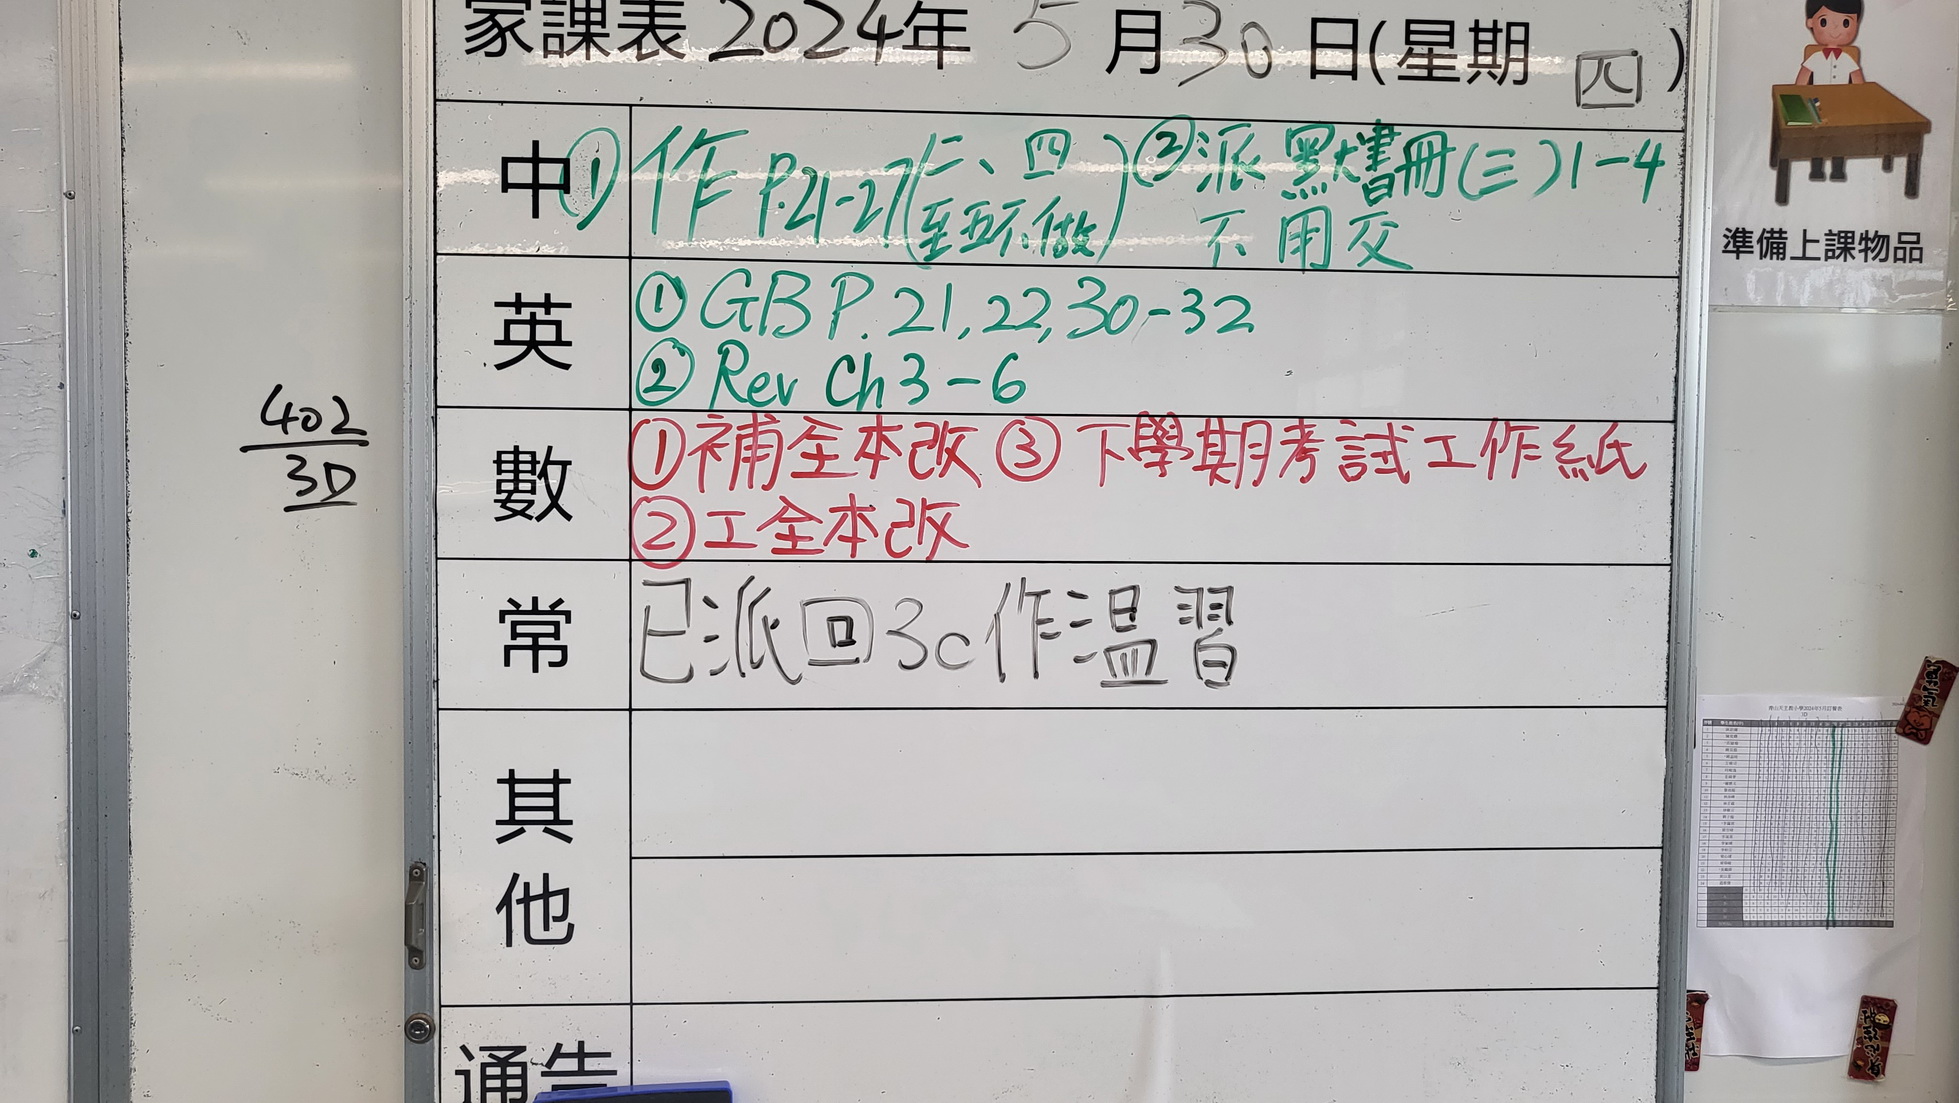 家課表 2024年 5 月 30 日(星期 四)
中 ① 作 P.21-27(二、四至五不做) ② 派默書冊(三)1-4
不用交
英 ① GB P.21,22,30-32
② Rev Ch 3-6
數 ① 補全本改 ③ 下學期考試工作紙
② 工全本改
常 已派回3c作溫習
其他
通告
402
3D
準備上課物品